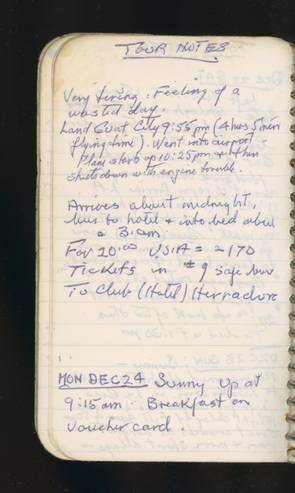 TOUR NOTES
Very tiring. Feeling of a
wasted day.
Land Guat City 9:55 pm (4 hrs 5 min
flying time). Went into airport
Plane starts up 10:25 pm & then
shuts down with engine trouble.
Arrives about midnight,
bus to hotel & into bed about
3 am.
For 20.00 USA = 170
Tickets in # 9 safe box
To Club (Hotel) Herradura
MON DEC 24 Sunny Up at
9:15 am. Breakfast on
Voucher card.